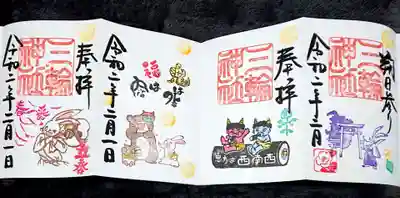 朔日参
三輪神社
令和二年二月
奉拝
三輪神社
西南西
令和二年二月一日
奉拝
三輪神社
令和二年二月一日